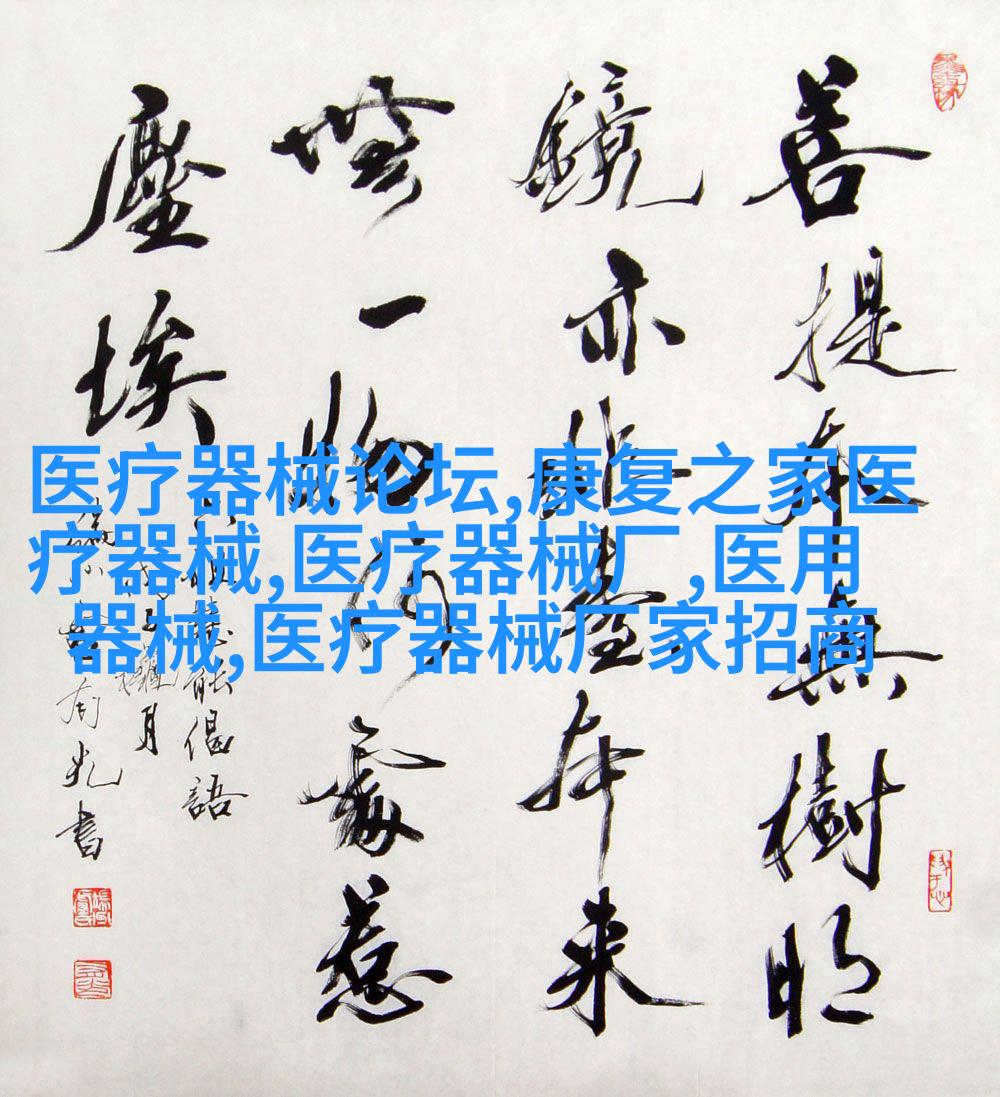 菩提本無樹明
鏡亦非臺本來
無一物何處惹
塵埃
六祖慧能偈語
医疗器械论坛,康复之家医
疗器械,医疗器械厂,医用
器械,医疗器械厂家招商